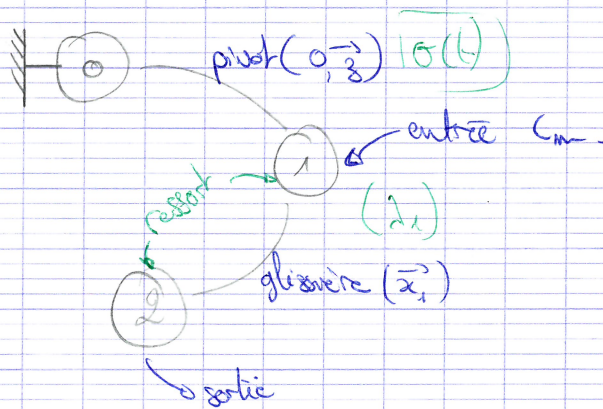 0
pivot (O, z⃗) |θ(t)
1
entrée Cm
ressort
(λ1)
glissière (x⃗1)
2
sortie